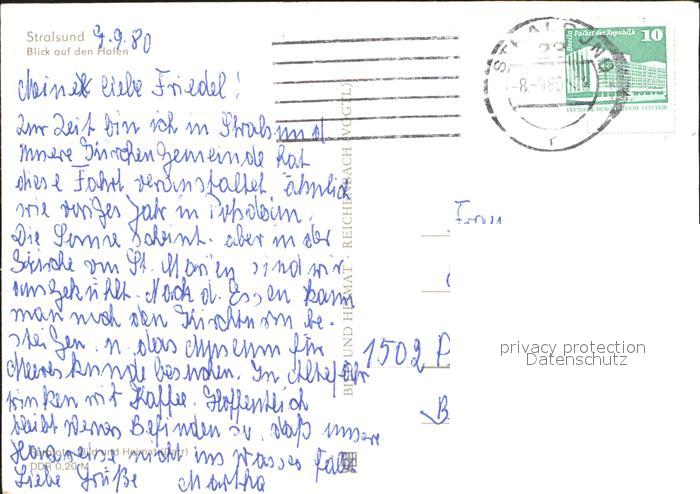 Stralsund 7.9.80
Blick auf den Hafen
Meine liebe Friedel!
Zur Zeit bin ich in Stralsund
unsere Kirchengemeinde hat
diese Fahrt veranstaltet ähnlich
wie voriges Jahr in
Die Sonne scheint. aber in der
Kirche von St. Marien sind wir
ausgekühlt. Nach d. Essen kann
man noch den Kirchturm be-
steigen u. das Museum für
Meereskunde besuchen. In Altefähr
winken wir Kaffee. Hoffentlich
bleibt Befinden so, daß unsere
nicht ins Wasser fällt
Liebe Grüße Martha
Bild und Heimat
DDR 0,20 M
BILD UND HEIMAT REICHENBACH (VOGTL)
STRALSUND
23
-8.-9.80
r
Berlin Palast der Republik 10
DEUTSCHE DEMOKRATISCHE REPUBLIK
Frau
1502 P
B
privacy protection
Datenschutz